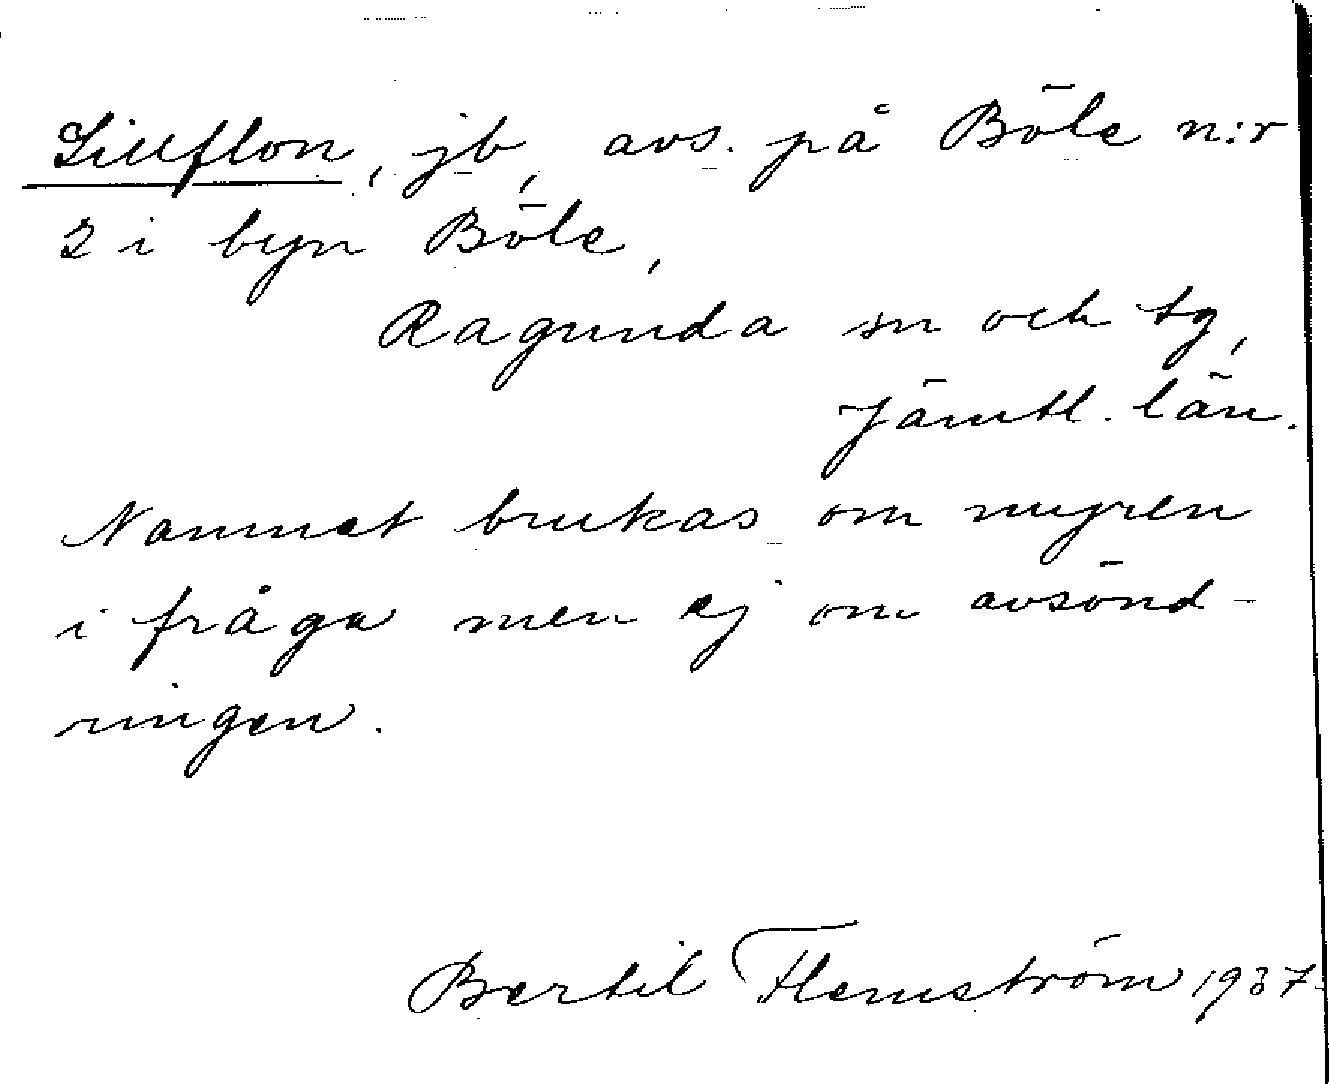 Lillflon, jb, avs. på Böle n:r
2 i byn Böle,
Ragunda sn och tg,
Jämtl. län.
Namnet brukas om myren
i fråga men ej om avsönd-
ringen.
Bertil Flemström 1937.